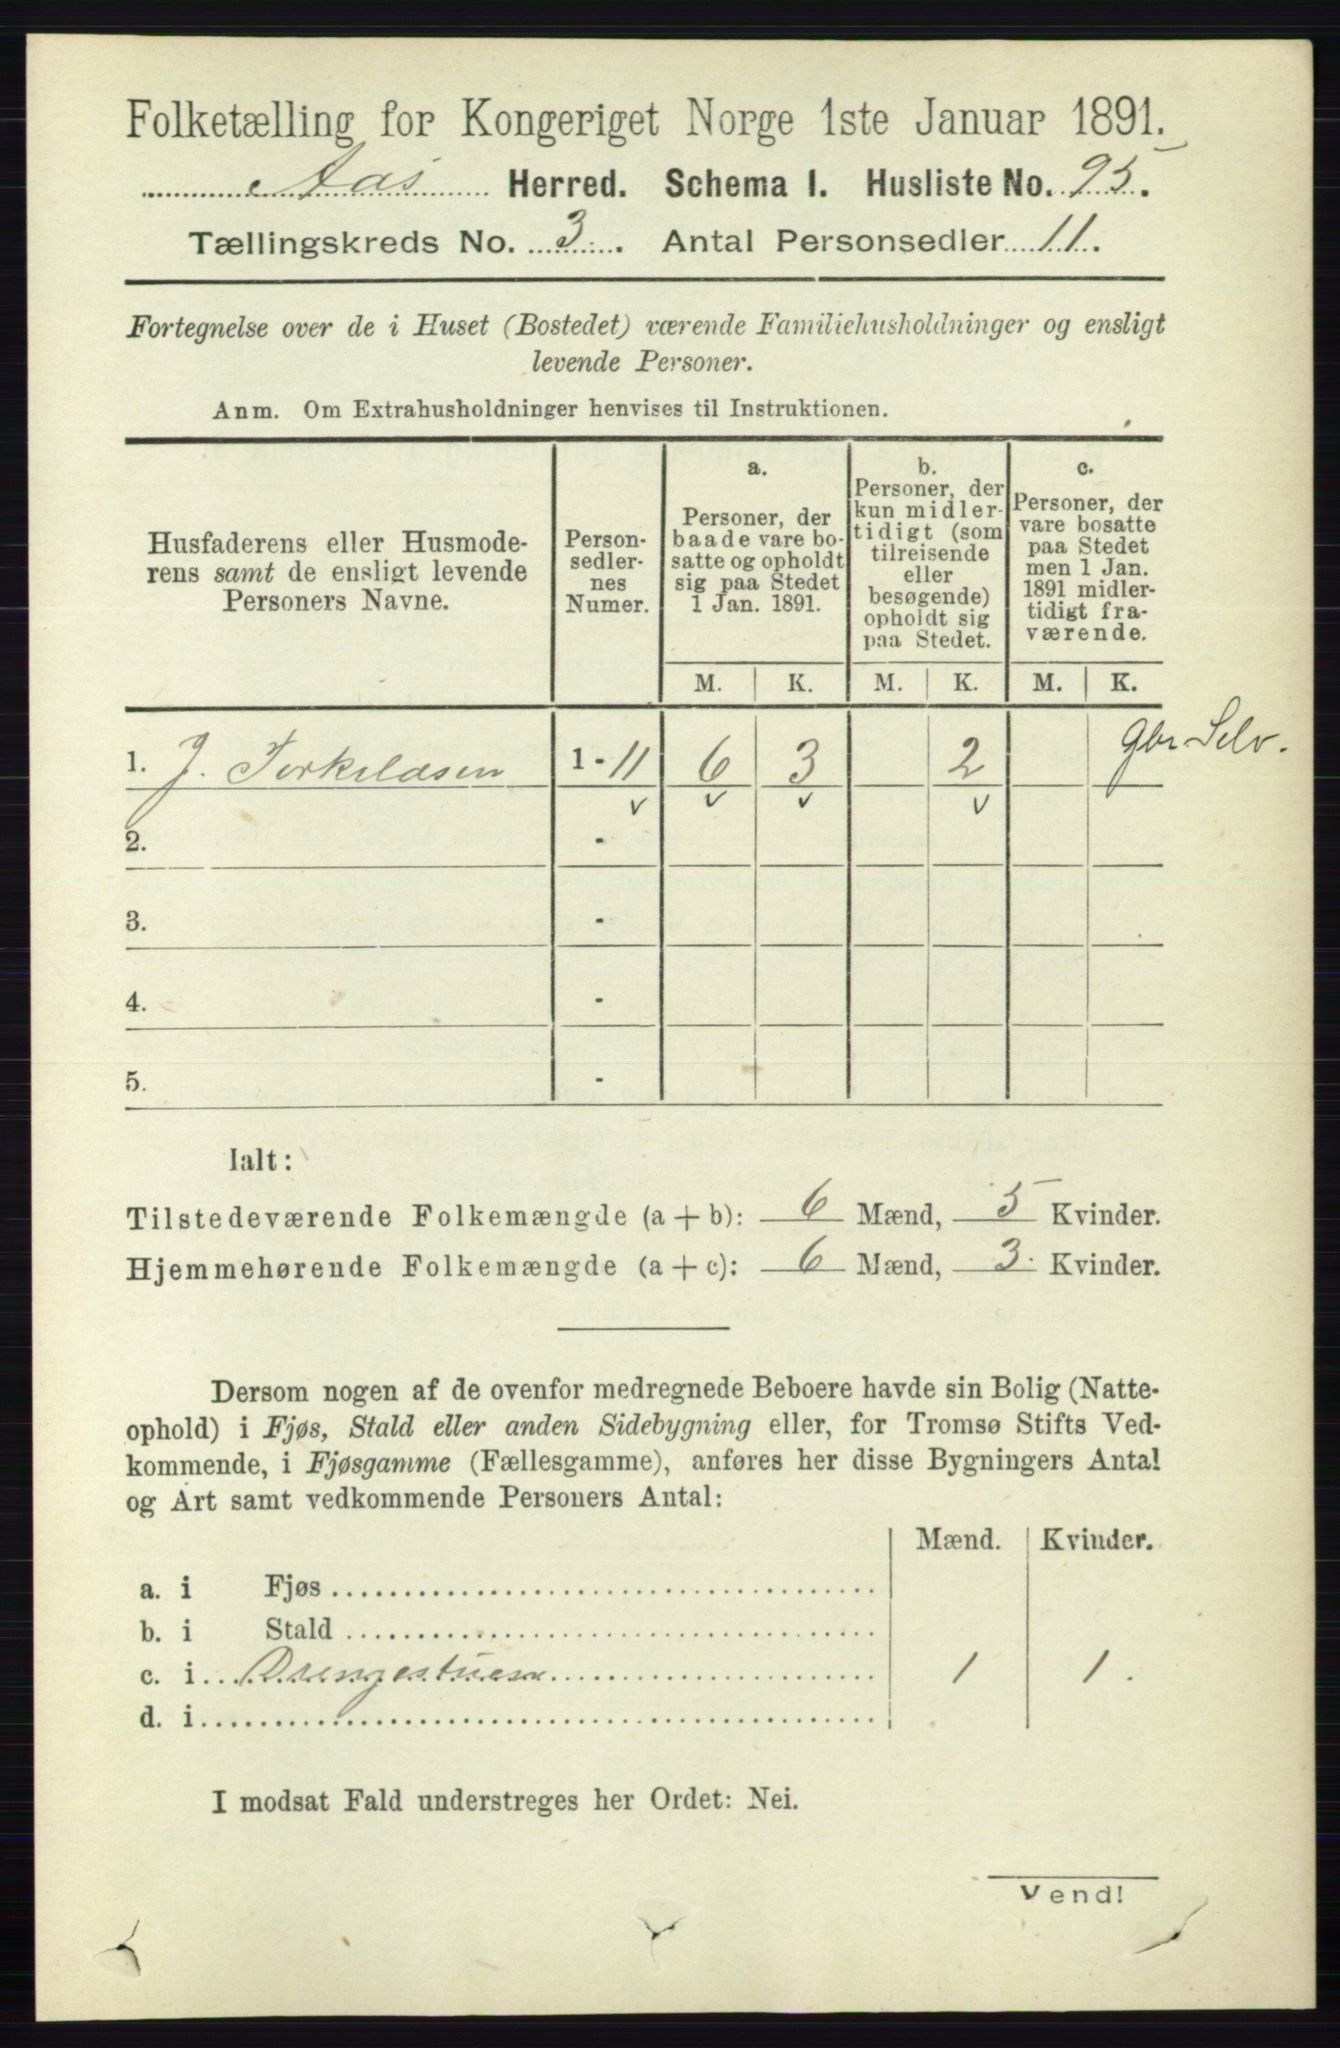 Folketælling for Kongeriget Norge 1ste Januar 1891.
Aas Herred. Schema I. Husliste No. 95.
Tællingskreds No. 3. Antal Personsedler 11.
Fortegnelse over de i Huset (Bostedet) værende Familiehusholdninger og ensligt
levende Personer.
Anm. Om Extrahusholdninger henvises til Instruktionen.
Husfaderens eller Husmode-
rens samt de ensligt levende
Personers Navne.
Person-
sedler-
nes
Numer.
a.
Personer, der
baade vare bo-
satte og opholdt
sig paa Stedet
1 Jan. 1891.
b.
Personer, der
kun midler-
tidigt (som
tilreisende
eller
besøgende)
opholdt sig
paa Stedet.
c.
Personer, der
vare bosatte
paa Stedet
men 1 Jan.
1891 midler-
tidigt fra-
værende.
M. K. M. K. M. K.
1. J. Torkildsen 1 - 11 6 3 2 gbr Selv.
v v v v
2. -
3. -
4. -
5. -
Ialt:
Tilstedeværende Folkemængde (a + b): 6 Mænd, 5 Kvinder.
Hjemmehørende Folkemængde (a + c): 6 Mænd, 3. Kvinder.
Dersom nogen af de ovenfor medregnede Beboere havde sin Bolig (Natte-
ophold) i Fjøs, Stald eller anden Sidebygning eller, for Tromsø Stifts Ved-
kommende, i Fjøsgamme (Fællesgamme), anføres her disse Bygningers Antal
og Art samt vedkommende Personers Antal:
Mænd. Kvinder.
a. i Fjøs
b. i Stald
c. i Drengestuen 1 1.
d. i
I modsat Fald understreges her Ordet: Nei.
Vend!